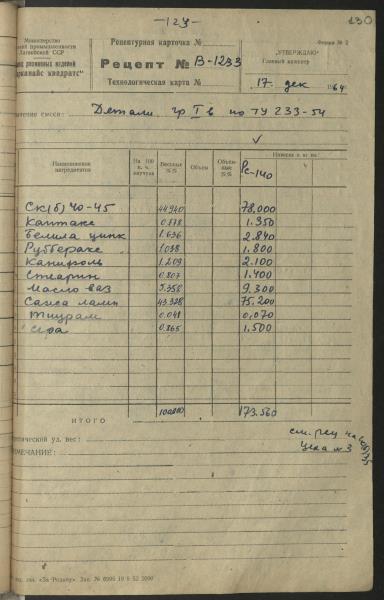 — 129 —
130
Министерство
промышленности
Латвийской ССР
резиновых изделий
квадратс"
Рецептурная карточка №
Рецепт № В-1233
Технологическая карта №
Форма № 2
„УТВЕРЖДАЮ"
Главный инженер
17. дек 64
чение смеси: Детали гр I в по ТУ 233-54
Наименование ингредиентов
На 100 в. ч. каучука
Весовые %%
Объем
Объемн. %%
Навеска в кг на:
Рс-140
Ск(б) 40-45 44.940 78.000
Каптакс 0.778 1.350
Белила цинк 1.636 2.840
Рубберакс 1.038 1.800
Канифоль 1.209 2.100
Стеарин 0.807 1.400
Масло ваз 5.358 9.300
Сажа ламп 43.328 75.200
Тиурам 0.041 0.070
сера 0.865 1.500
ИТОГО 100.000 173.560
тический уд. вес:
см. рец на
цеха № 3
МЕЧАНИЕ:
тип. „За Родину" Зак. № 6996 19 9 52 2000